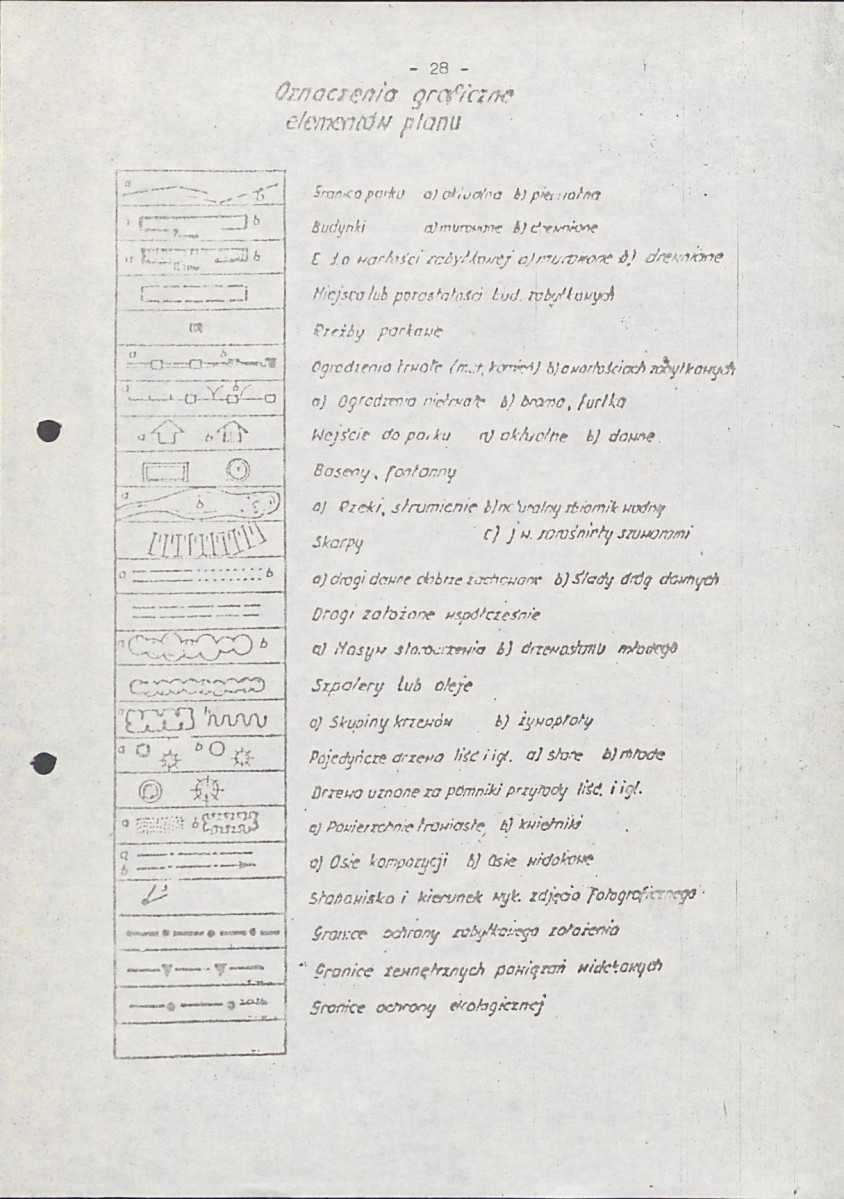 - 28 -
Oznaczenia graficzne
elementów planu
Granica parku a) aktualna b) pierwotna
Budynki a) murowane b) drewniane
o wartości zabytkowej a) murowane b) drewniane
Miejsca lub pozostałości bud. zabytkowych
Rzeźby parkowe
Ogrodzenia trwałe (met, kamień) b) o wartościach zabytkowych
a) Ogrodzenia nietrwałe b) brama, furtka
Wejście do parku a) aktualne b) dawne
Baseny, fontanny
a) Rzeki, strumienie b) naturalny zbiornik wodny
Skarpy c) j w. zarośnięty szuwarami
a) drogi dawne dobrze zachowane b) Ślady dróg dawnych
Drogi założone współcześnie
a) Masyw starodrzewia b) drzewostanu młodego
Szpalery lub aleje
a) Skupiny krzewów b) żywopłoty
Pojedyńcze drzewa liść i igl. a) stare b) młode
Drzewa uznane za pomniki przyrody liść. i igl.
a) Powierzchnie trawiaste b) kwietniki
a) Osie kompozycji b) Osie widokowe
Stanowisko i kierunek wyk. zdjęcia fotograficznego
Granice ochrony zabytkowego założenia
Granice zewnętrznych powiązań widokowych
Granice ochrony ekologicznej